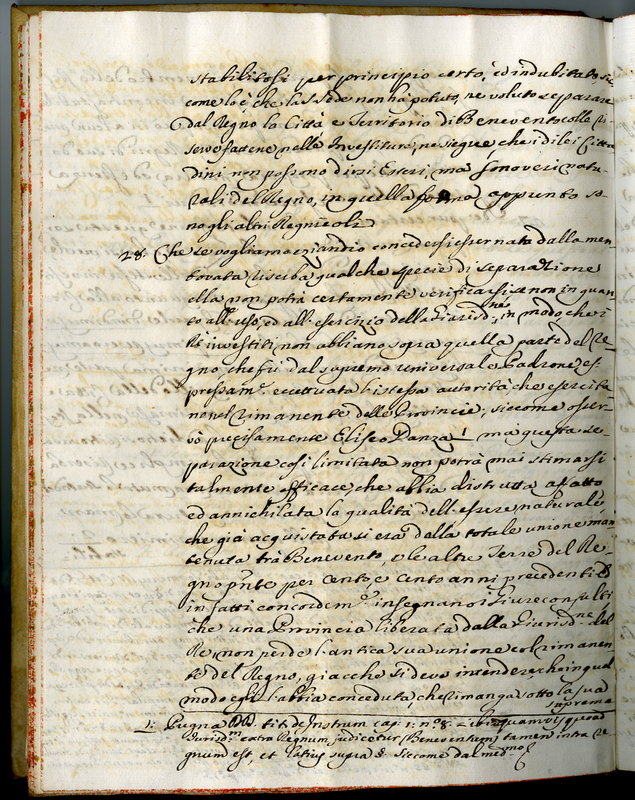 stabilitosi per principio certo, ed indubitato, sic
come lo è che la S. Sede non hà potuto, ne voluto separare
dal Regno la Città e Territorio di Benevento colle ri
serve fattene nelle Investiture, ne siegue, che i di lei Citta
dini non possono dirsi Esteri, ma sono veri natu-
rali del Regno, in quella forma appunto so-
no gli altri Regnicoli
28. Che se vogliam eziandio concedersi esser nata dalla men-
tovata riserba qualche specie di separazione
ella non potrà certamente verificarsi se non in quan
to all'uso, ed all'esercizio della Giurisd.ne, in modo che i
Rè investiti non abbiano sopra quella parte del Re
gno, che fù dal supremo universale Padrone es-
pressam.e eccettuata l'istessa autorità che esercita
no nel rimanente delle Provincie, siccome osser-
vò precisamente Eliseo Danza 1 ma questa se-
parazione così limitata non potrà mai stimarsi
talmente efficace, che abbia distrutta affatto
ed annichilata la qualità dell'essere naturale
che già acquistata si era dalla totale unione man
tenuta trà Benevento, e le altre Terre del Re-
gno per cento, e cento anni precedenti. E
in fatti concordem.e insegnano i Giureconsulti
che una Provincia liberata dalla Giurisd.ne del
Re, non perde l'antica sua unione col rimanen-
te del Regno, giacche si deve intendere, che in quel
modo egli l'abbia conceduta, che rimanga sotto la sua
suprema
1: Pugna tit. de Instrum cap: 1: n.º 8: quamvis quoad
Jurisd.m extra Regnum judicetur (Beneventum) tamen intra Re-
gnum est, et latius supra siccome dal med.mo